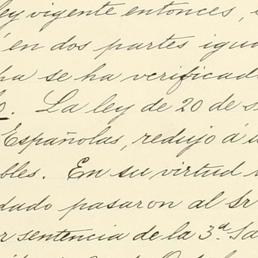 ley vigente entonces,
en dos partes igua
ha se ha verificado
La ley de 20 de s
Españolas, redujo á u
bles. En su virtud
dado pasaron al Sr
r sentencia de la 3ª Sa